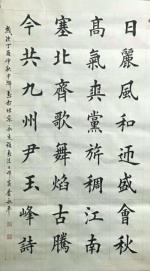 日麗風和迎盛會秋
高氣爽黨旂稠江南
塞北齊歌舞焰古騰
今共九州尹玉峰詩
歲次丁酉仲秋